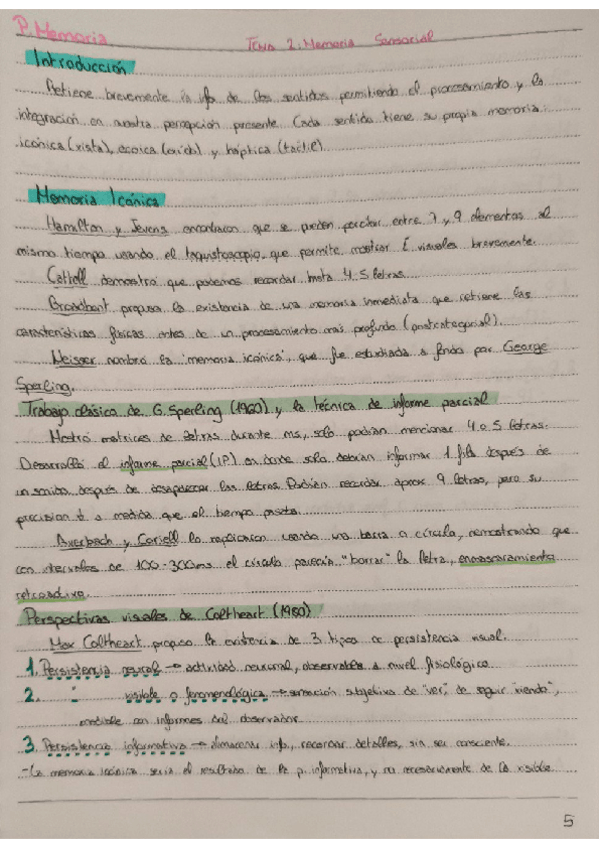 P. Memoria
Tema 2: Memoria Sensorial
Introducción
Retiene brevemente la info de los sentidos permitiendo el procesamiento y la
integración en nuestra percepción presente. Cada sentido tiene su propia memoria:
icónica (vista), ecoica (oído) y háptica (táctil).
Memoria Icónica
Hamilton y Jevons encontraron que se pueden percibir entre 7 y 9 elementos al
mismo tiempo usando el taquistoscopio, que permite mostrar E visuales brevemente.
Cattell demostró que podemos recordar hasta 4-5 letras.
Broadbent propuso la existencia de una memoria inmediata que retiene las
características físicas antes de un procesamiento más profundo (postcategorial).
Neisser nombró la "memoria icónica", que fue estudiada a fondo por George
Sperling.
Trabajo clásico de G. Sperling (1960) y la técnica de informe parcial
Mostró matrices de letras durante ms, solo podían mencionar 4 o 5 letras.
Desarrolló el informe parcial (IP) en donde solo debían informar 1 fila después de
un sonido después de desaparecer las letras. Podían recordar aprox 9 letras, pero su
precisión ↓ a medida que el tiempo pasaba.
Averbach y Coriell lo replicaron usando una barra o círculo, demostrando que
con intervalos de 100-300ms el círculo parecía "borrar" la letra, enmascaramiento
retroactivo.
Perspectivas visuales de Coltheart (1980)
Max Coltheart propuso la existencia de 3 tipos de persistencia visual.
1. Persistencia neural → actividad neuronal, observables a nivel fisiológico
2. " visible o fenomenológica → sensación subjetiva de "ver", de seguir "viendo",
medible con informes del observador
3. Persistencia informativa → almacenar info, recordar detalles, sin ser consciente.
- La memoria icónica sería el resultado de la p. informativa, y no necesariamente de la visible.
5